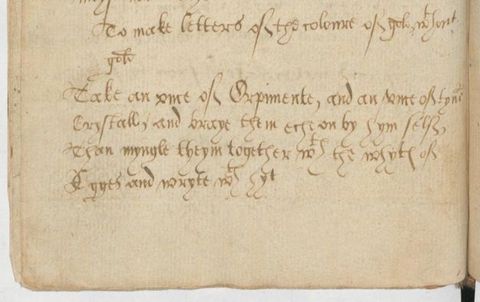 To make letters of the coloure of gold wthout
gold
Take an unce of Orpimente, and an unce of fyne
Crystall, and braye them eche on by hym self,
Than myngle theym together wth the whyth of
Egges and wryte wth hyt